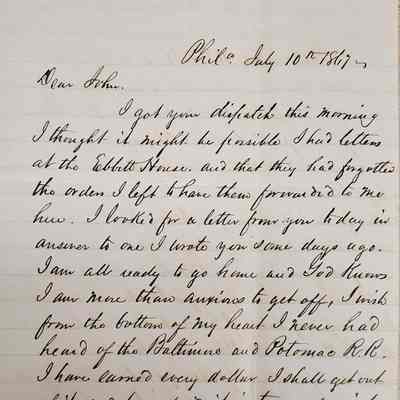 Phila. July 10th 1867
Dear John.
I got your dispatch this morning
I thought it might be possible I had letters
at the Ebbitt House. and that they had forgotten
the orders I left to have them forwarded to me
here. I looked for a letter from you today in
answer to one I wrote you some days ago.
I am all ready to go home and God knows
I am more than anxious to get off, I wish
from the bottom of my heart I never had
heard of the Baltimore and Potomac R.R.
I have earned every dollar I shall get out